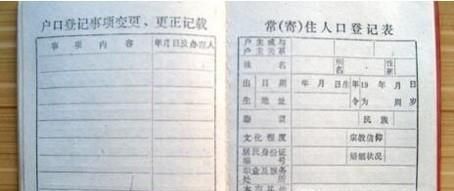 户口登记事项变更、更正记载
事项内容 年月日及办理人
常(寄)住人口登记表
户主或与
户主关系
姓名 别名 性别
出日期 年月日生 年19年月日
生地址 令为周岁
籍贯 民族
文化程度 宗教信仰
居民身份证
编号 婚姻状况
职业及服务
处所